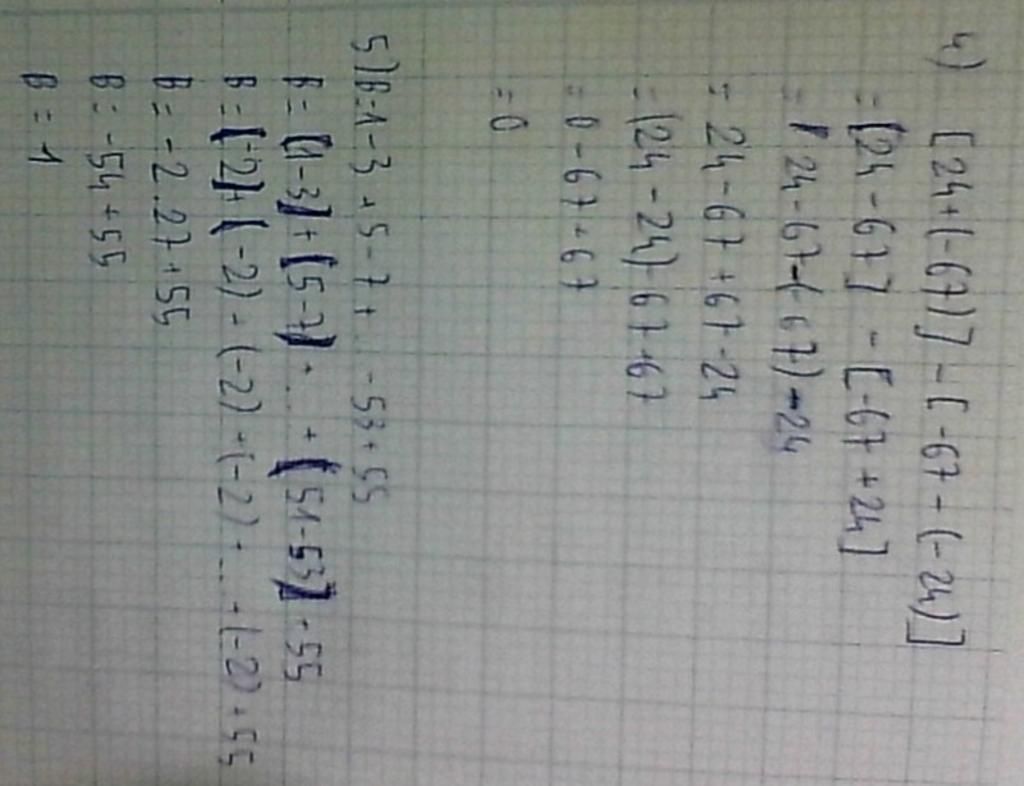 4) [24+(-67)] - [-67 - (-24)]
= [24 - 67] - [-67 + 24]
= 24 - 67 - (-67) - 24
= 24 - 67 + 67 - 24
= (24 - 24) - 67 + 67
= 0 - 67 + 67
= 0
5) B=1-3 + 5-7 + ... -53 + 55
B = (1-3) + (5-7) + ... + (51-53) + 55
B = (-2) + (-2) + (-2) + (-2) + ... + (-2) + 55
B = -2.27 + 55
B = -54 + 55
B = 1